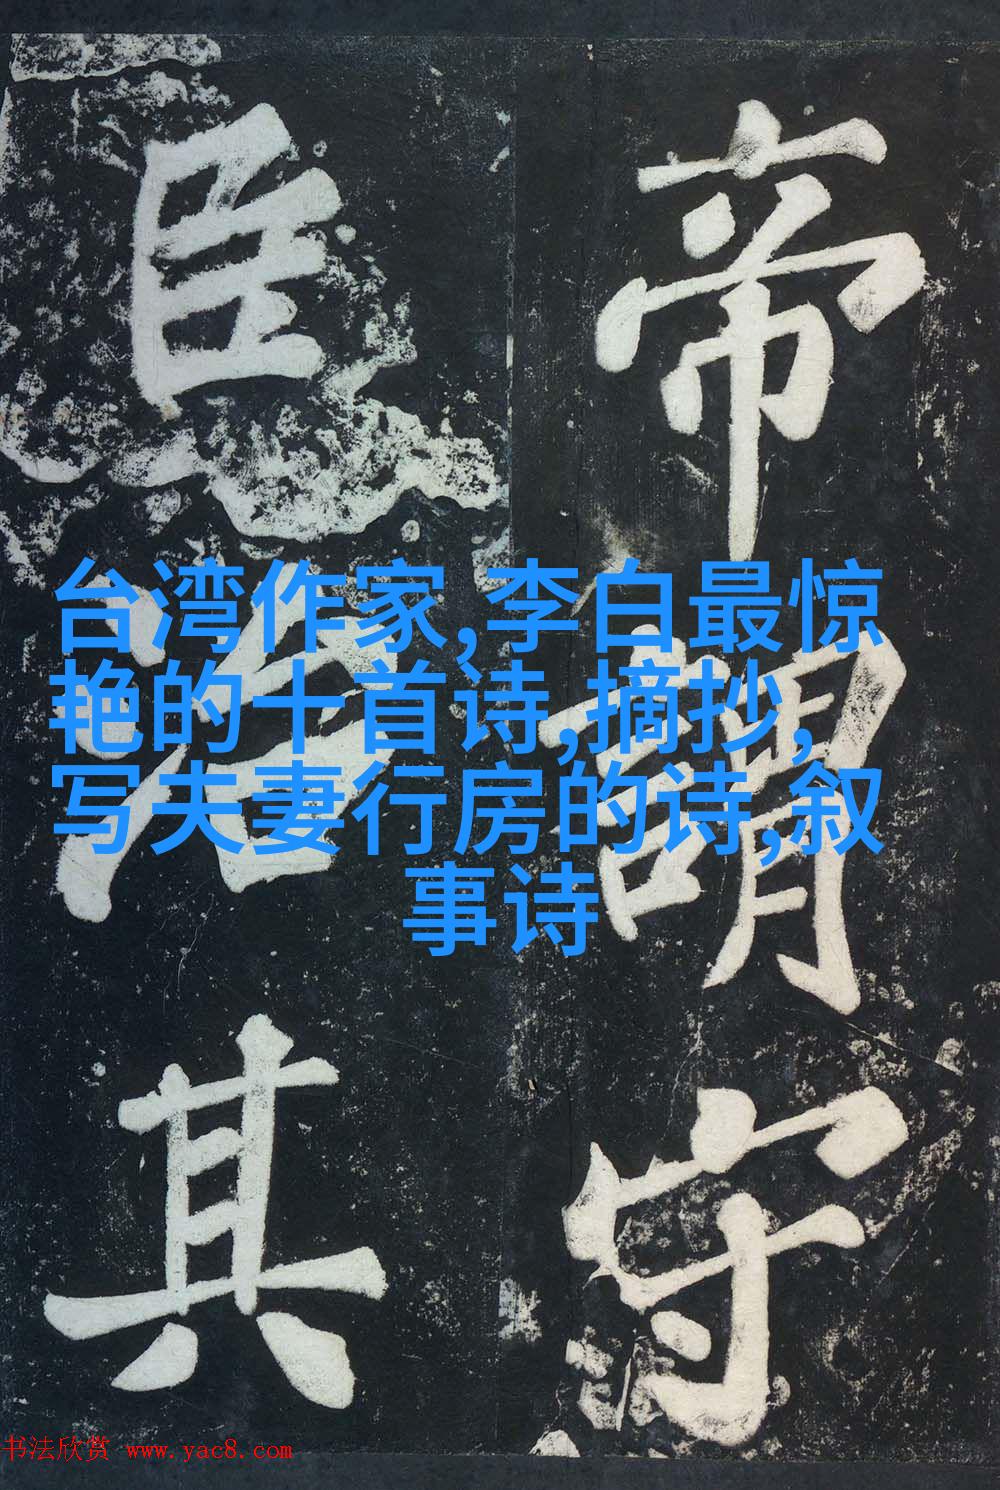 帝謂守
臣治其
台湾作家,李白最惊
艳的十首诗,摘抄,
写夫妻行房的诗,叙
事诗
书法欣赏 www.yac8.com